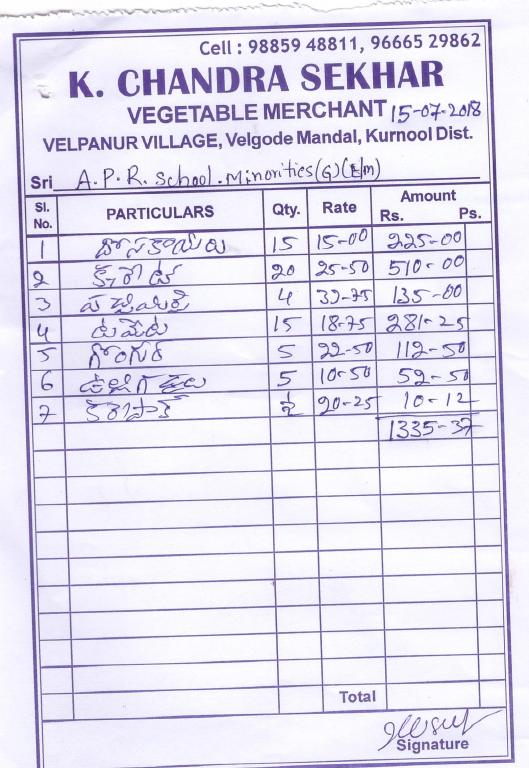 Cell : 98859 48811, 96665 29862
K. CHANDRA SEKHAR
VEGETABLE MERCHANT 15-07-2018
VELPANUR VILLAGE, Velgode Mandal, Kurnool Dist.
Sri A.P.R. School. Minorities(G)(E/m)
Sl. No. PARTICULARS Qty. Rate Amount Rs. Ps.
1 దోసకాయలు 15 15-00 225-00
2 20 25-50 510-00
3 పచ్చిమిర్చి 4 33-75 135-00
4 టమేట 15 18-75 281-25
5 గోంగుర 5 22-50 112-50
6 ఉల్లిగడ్డలు 5 10-50 52-50
7 కరేపాక్ ½ 20-25 10-12
1335-37
Total
Signature